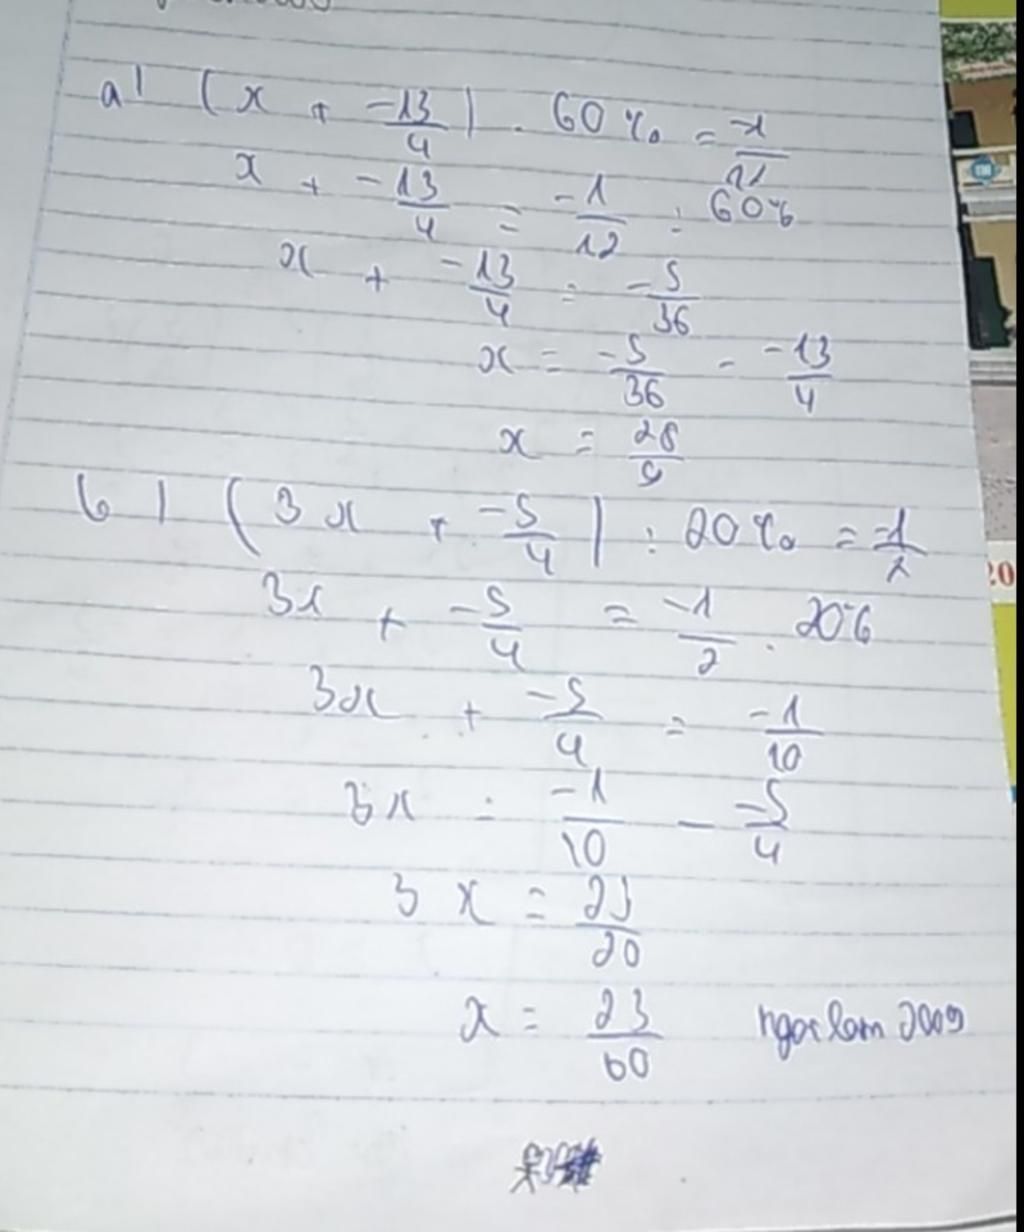 a) (x + -13/4) . 60% = -1/12
x + -13/4 = -1/12 : 60%
x + -13/4 = -5/36
x = -5/36 - -13/4
x = 28/9
b) (3x + -5/4) : 20% = -1/2
3x + -5/4 = -1/2 . 20%
3x + -5/4 = -1/10
3x = -1/10 - -5/4
20
3x = 23/20
x = 23/60 ngoclam2009